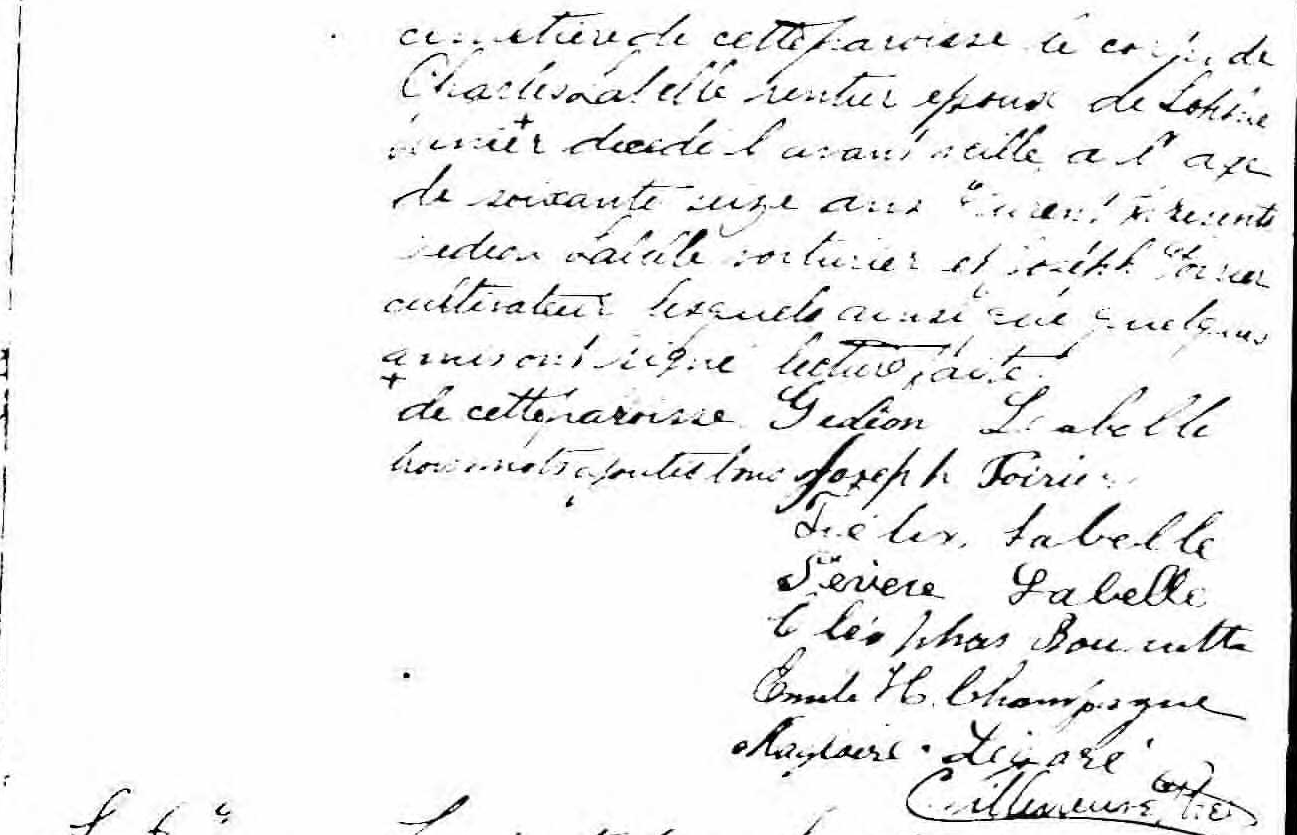 cimetière de cette paroisse le corps de
Charles Labelle rentier epoux de Sophie
+
decedé l'avant veille, a l'age
de soixante seize ans Furent presents
Gedeon Labelle voiturier et Joseph Poirier
cultivateur lesquels ainsi que quelques
amis ont signé lecture faite.
+ de cette paroisse Gedéon Labelle
trois mots ajoutés bons Joseph Poirier
Félix Labelle
Sévère Labelle
Cléophas
Emile H. Champagne
Magloire Légaré
Ptre